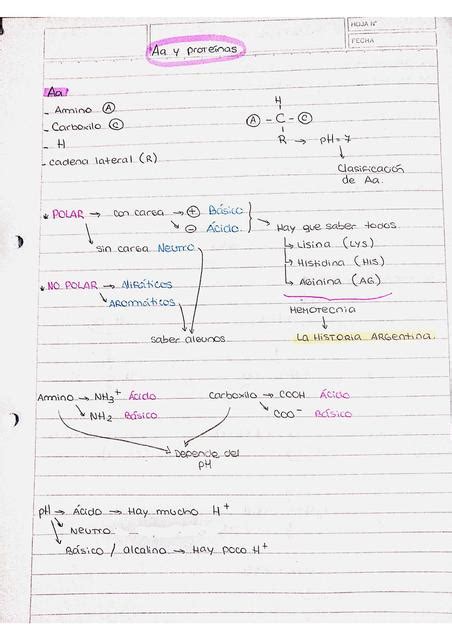 HOJA N°
FECHA
Aa y proteínas
Aa
- Amino (A)
- Carboxilo (C)
- H
- cadena lateral (R)
H
(A) - C - (C)
R → pH = 7
Clasificación
de Aa.
POLAR → con carga → (+) Básico
(-) Ácido
sin carga Neutro
Hay que saber todos
Lisina (LYS)
Histidina (HIS)
Arginina (AG)
NO POLAR → Alifáticos
Aromáticos
saber algunos
MEMOTECNIA
LA HISTORIA ARGENTINA.
Amino → NH3+ Ácido
NH2 Básico
Carboxilo → COOH Ácido
COO- Básico
Depende del
pH
pH → Ácido → Hay mucho H+
NEUTRO
Básico / alcalino → Hay poco H+